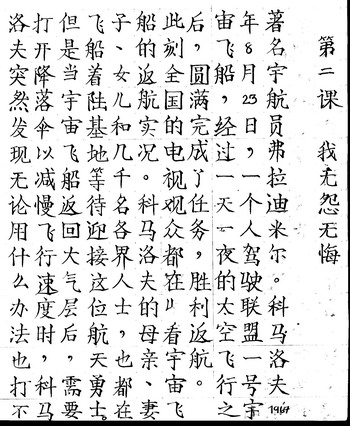 第二课 我无怨无悔
著名宇航员弗拉迪米尔。科马洛夫1967
年8月23日，一个人驾驶联盟一号宇
宙飞船，经过一天一夜的太空飞行之
后，圆满完成了任务，胜利返航。
此刻全国的电视观众都在〃看宇宙飞
船的返航实况。科马洛夫的母亲、妻
子、女儿和几千名各界人士，也都在
飞船着陆基地等待迎接这位航天勇士。
但是当宇宙飞船返回大气层后，需要
打开降落伞以减慢飞行速度时，科马
洛夫突然发现无论用什么办法也打不